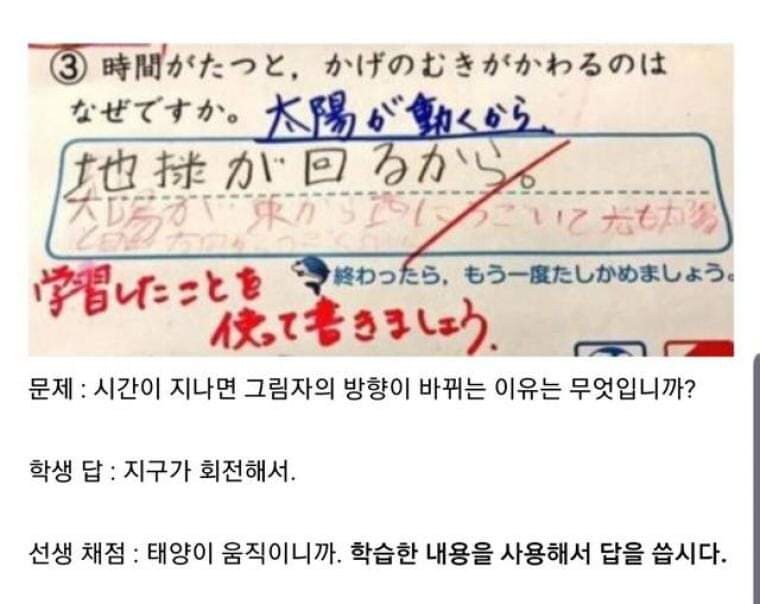 ③ 時間がたつと，かげのむきがかわるのは
なぜですか。 太陽が動くから、
地球が回るから。
太陽が東から西にうごいて
学習したことを
終わったら，もう一度たしかめましょう。
使って書きましょう。
문제 : 시간이 지나면 그림자의 방향이 바뀌는 이유는 무엇입니까?
학생 답 : 지구가 회전해서.
선생 채점 : 태양이 움직이니까. 학습한 내용을 사용해서 답을 씁시다.